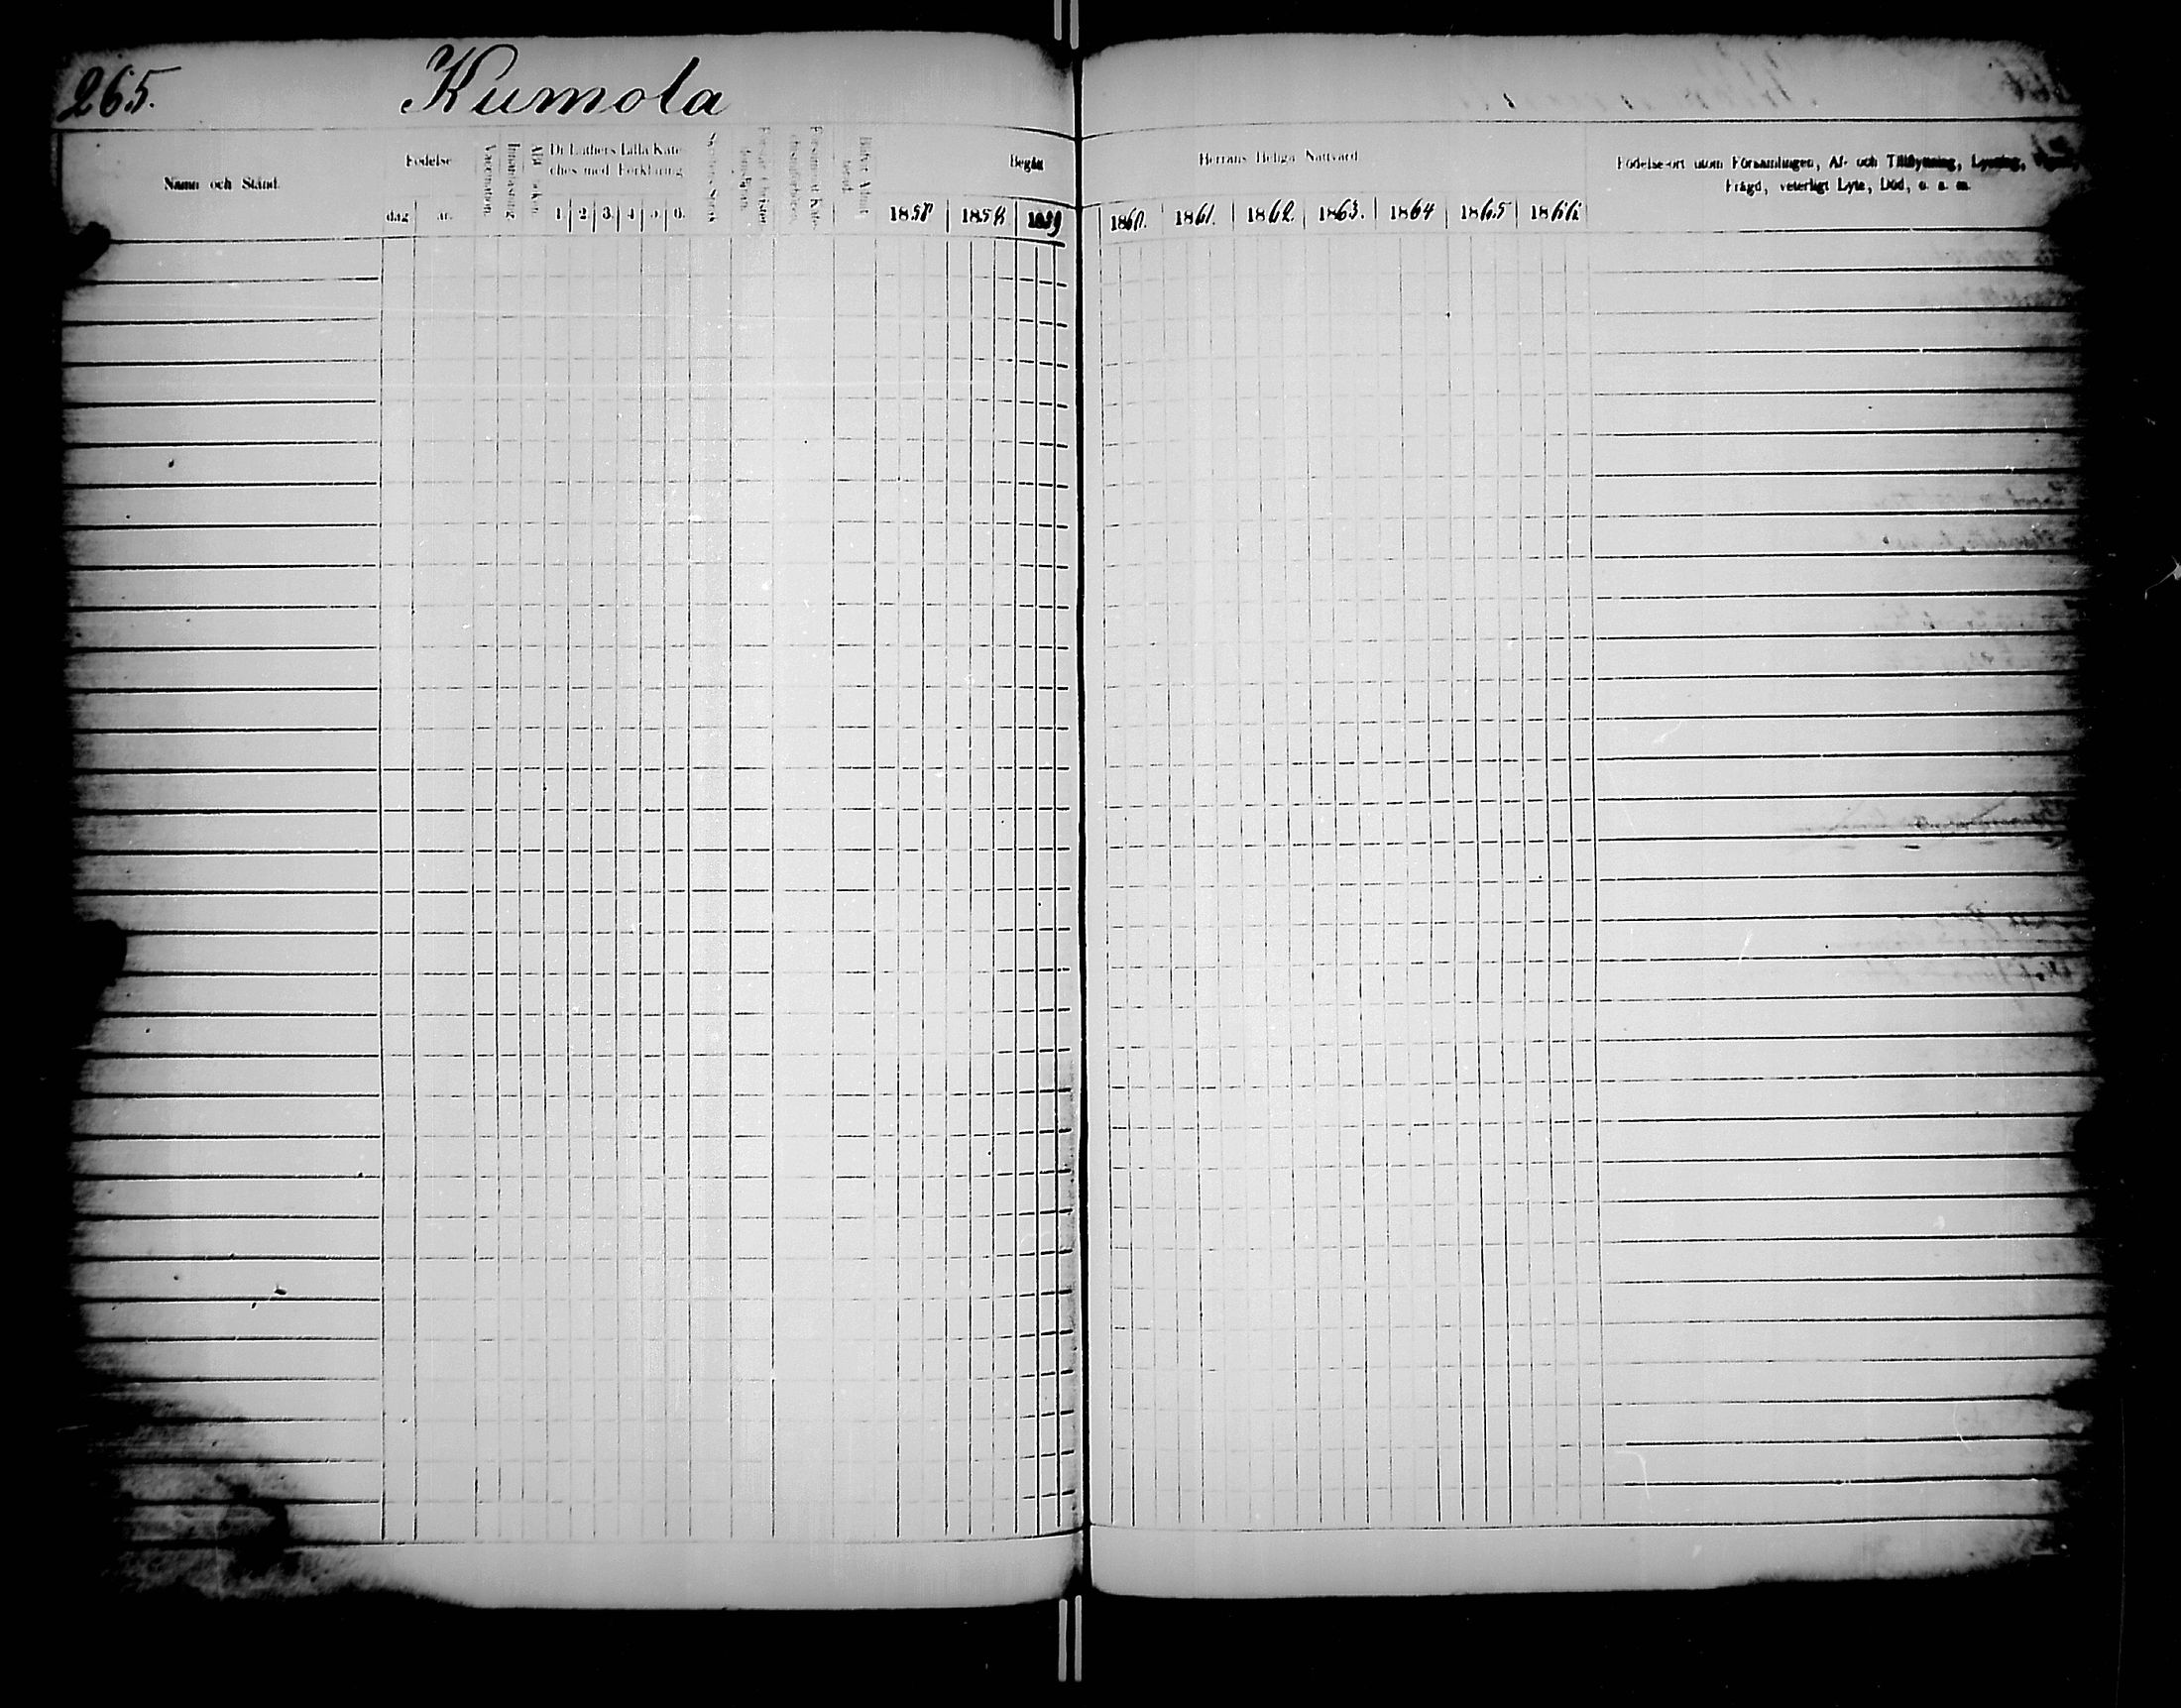 265. Kumola
Namn och Stånd.
Födelse
dag år.
Vaccination.
Innanläsning
Abc boken
Dr Luthers Lilla Kate-
ches med Förklaring
1. 2. 3. 4. 5. 6.
Begått
1857 1858 1859
Herrans Heliga Nattvard
1860. 1861. 1862. 1863. 1864 1865 1866
Födelse-ort utom Församlingen, Af- och Tillflyttning, Lysning,
Frägd, veterligt Lyte, Död, o. s. m.